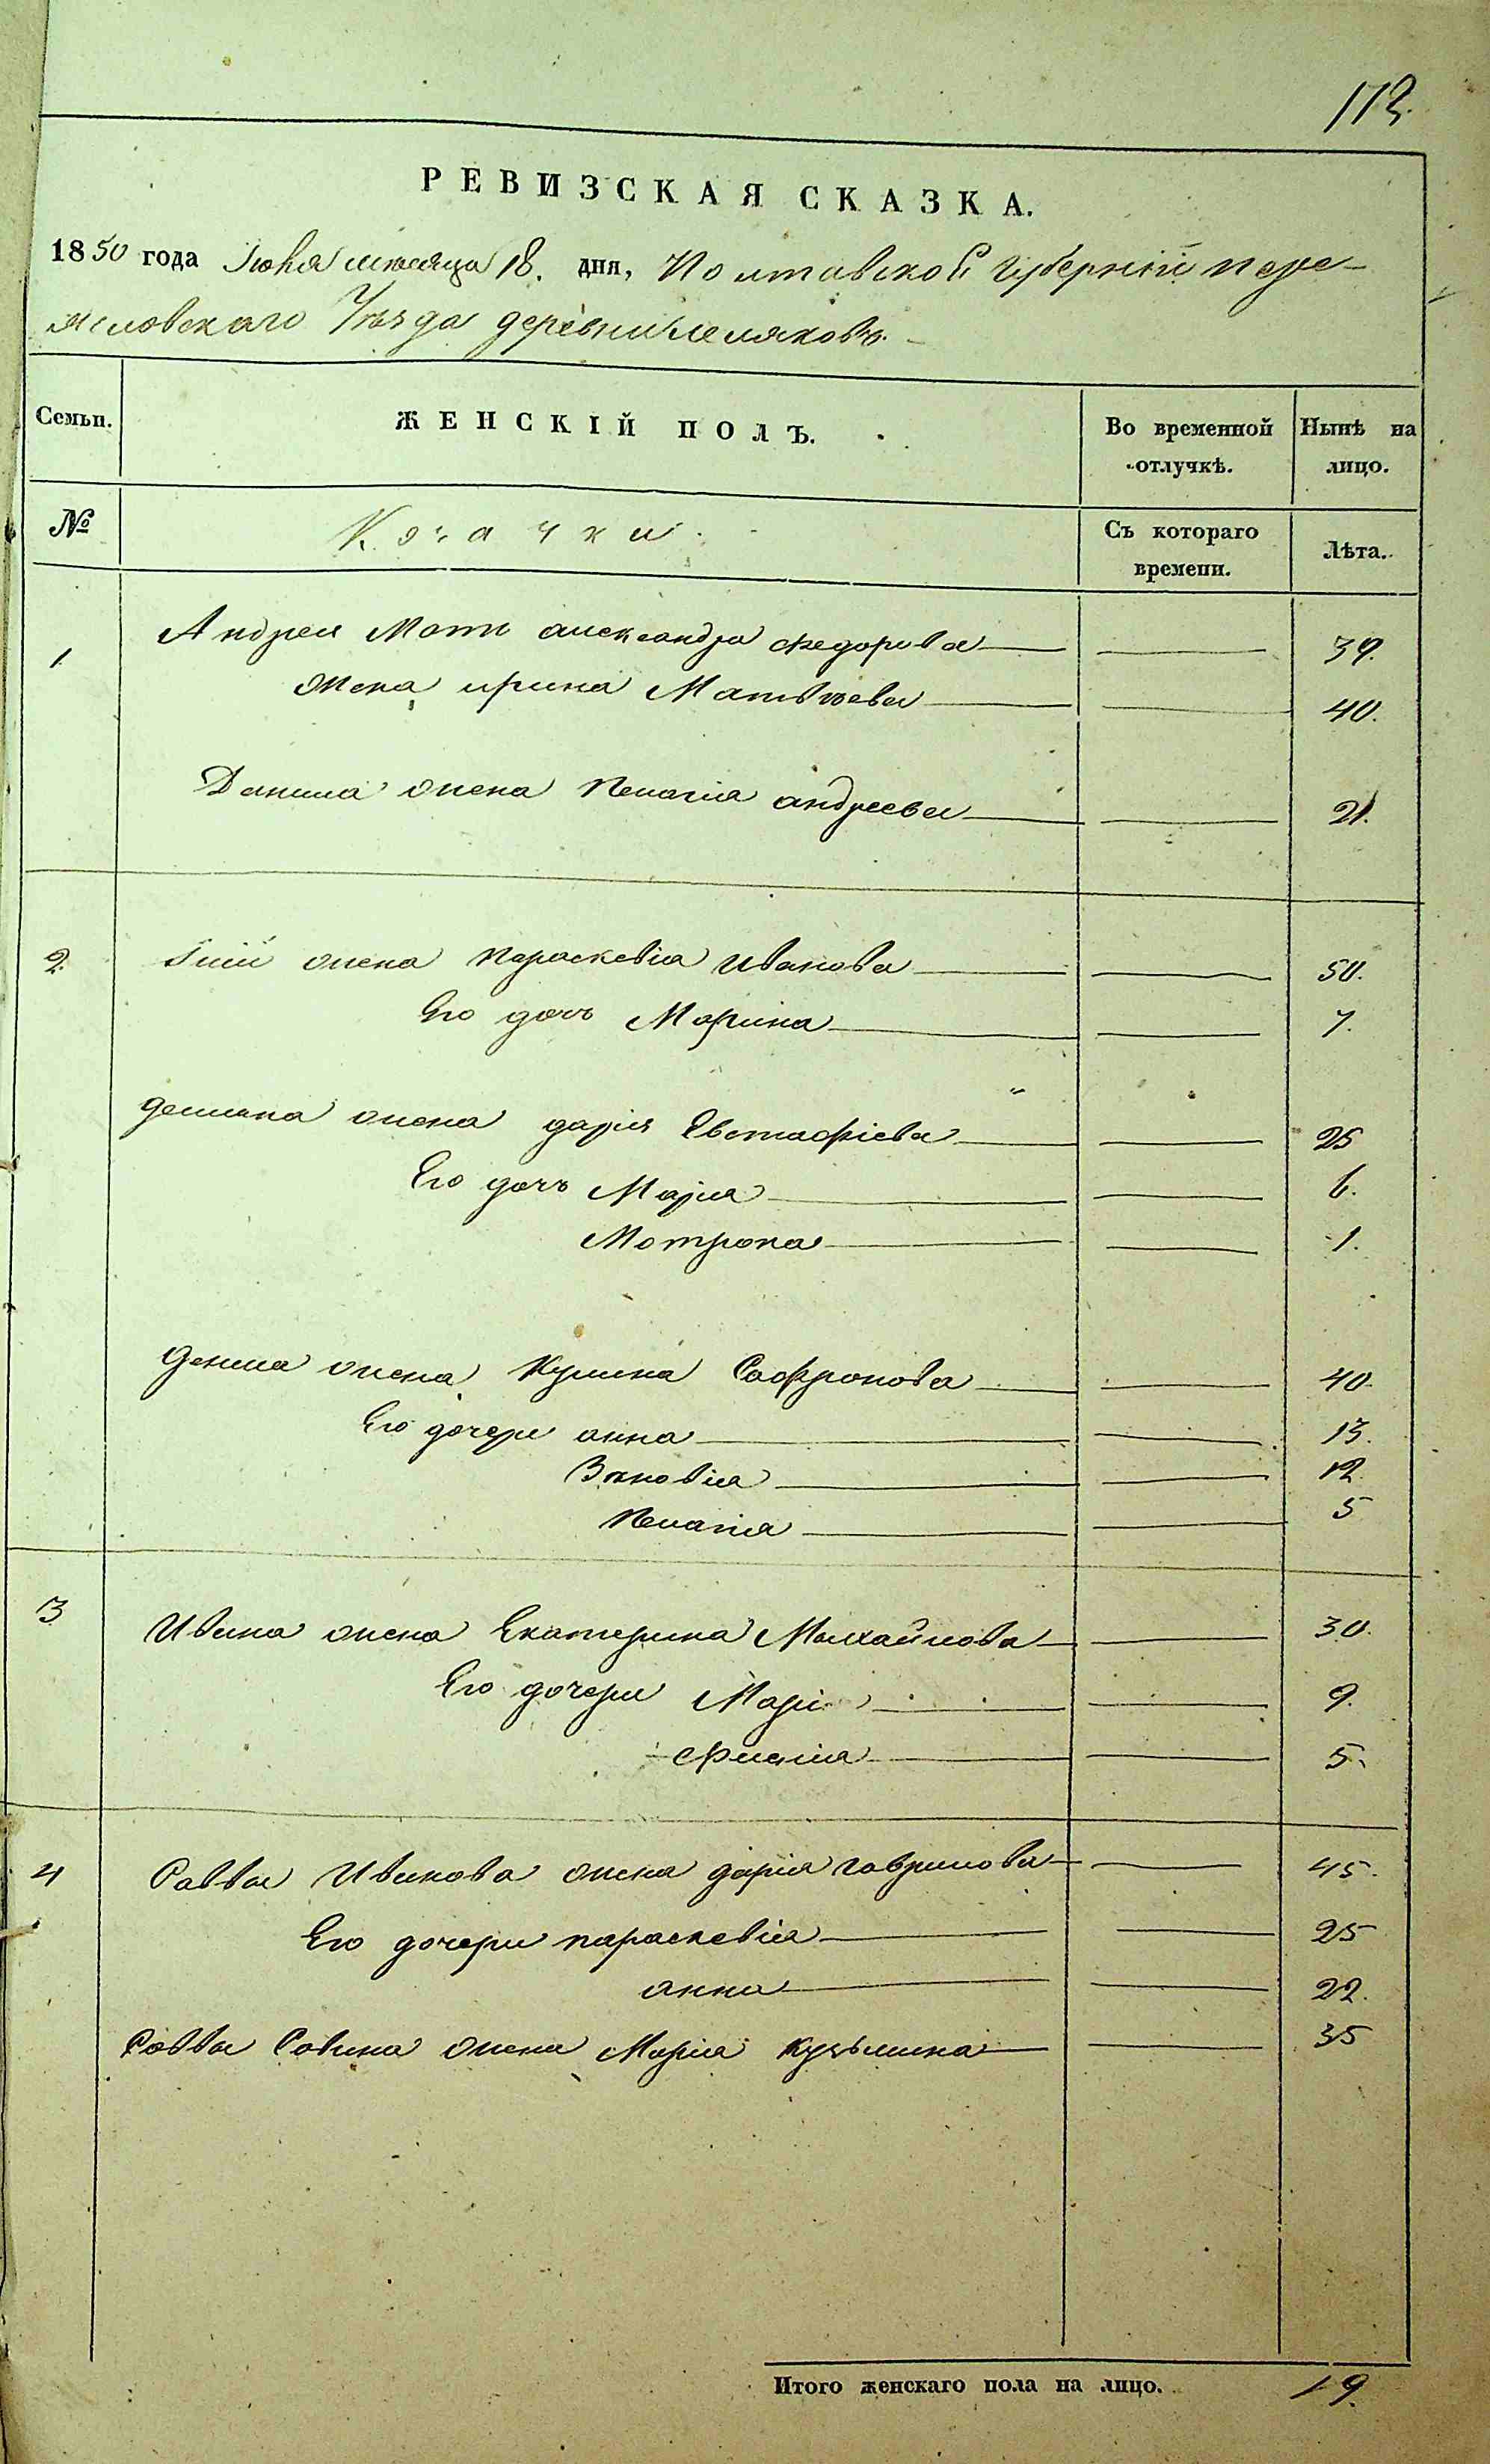 113.
РЕВИЗСКАЯ СКАЗКА.
1850 года Іюня мѣсяца 18. дня, Полтавской Губерніи пере-
яславскаго Уѣзда деревни Лемяковъ.
Семьи. ЖЕНСКІЙ ПОЛЪ. Во временной отлучкѣ. Нынѣ на лицо.
№ Козачки. Съ котораго времени. Лѣта.
1. Андрея Мать александра Федорова 39.
Жена ирина Матвѣева 40.
Данила жена Пелагія андреева 21.
2. жена Параскевія Иванова 50.
Его дочь Марина 7.
Демяна жена дарія Евстафіева 25
Его дочь Марія 6.
Мотрона 1.
дениса жена Кулина Сафронова 40.
Его дочери анна 13.
Зѣновія 12.
Пелагія 5
3 Ивана жена Екатерина Михайлова 30.
Его дочери Марія 9.
5.
4 Саввы Иванова жена дарія гаврилова 45.
Его дочери параскевія 25
анна 22.
Саввы Савина жена Марія кузьмина 35
Итого женскаго пола на лицо. 19.